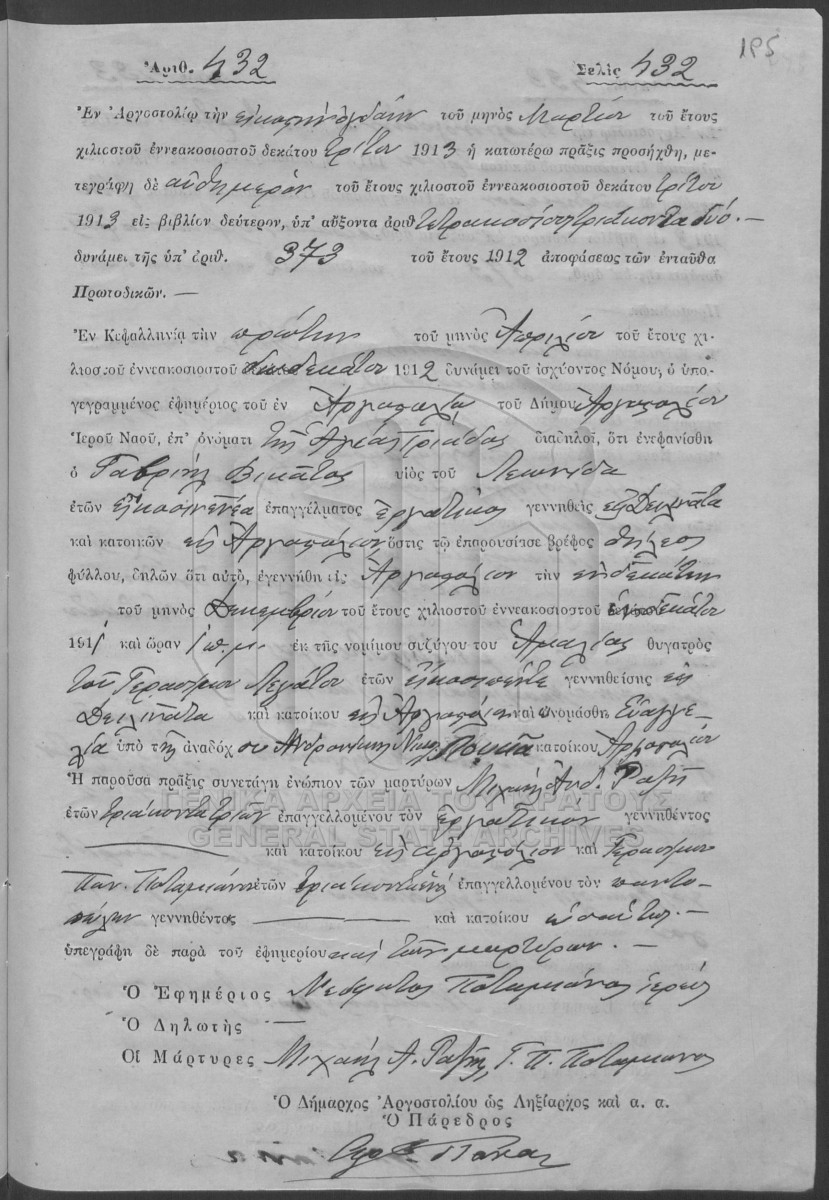 195
Ἀριθ. 432 Σελὶς 432
Ἐν Ἀργοστολίῳ τὴν εἰκοστὴν ὀγδόην τοῦ μηνὸς Μαρτίου τοῦ ἔτους
χιλιοστοῦ ἐννεακοσιοστοῦ δεκάτου τρίτου 1913 ἡ κατωτέρω πρᾶξις προσήχθη, με-
τεγράφη δὲ αὐθημερὸν τοῦ ἔτους χιλιοστοῦ ἐννεακοσιοστοῦ δεκάτου τρίτου
1913 εἰς βιβλίον δεύτερον, ὑπ' αὔξοντα ἀριθ. τετρακόσια τριάκοντα δύο. —
δυνάμει τῆς ὑπ' ἀριθ. 373 τοῦ ἔτους 1912 ἀποφάσεως τῶν ἐνταῦθα
Πρωτοδικῶν. —
Ἐν Κεφαλληνίᾳ τὴν πρώτην τοῦ μηνὸς Ἀπριλίου τοῦ ἔτους χι-
λιοστοῦ ἐννεακοσιοστοῦ δωδεκάτου 1912 δυνάμει τοῦ ἰσχύοντος Νόμου, ὁ ὑπο-
γεγραμμένος ἐφημέριος τοῦ ἐν Ἀργοστολίῳ τοῦ Δήμου Ἀργοστολίου
Ἱεροῦ Ναοῦ, ἐπ' ὀνόματι τῆς Ἁγίας Τριάδος διαδηλοῖ, ὅτι ἐνεφανίσθη
ὁ Γαβριὴλ Βικάτος υἱὸς τοῦ Λεωνίδα
ἐτῶν εἴκοσι ἐννέα ἐπαγγέλματος ἐργατικὸς γεννηθεὶς εἰς Δειλινάτα
καὶ κατοικῶν εἰς Ἀργοστόλιον ὅστις τῷ ἐπαρουσίασε βρέφος θήλεος
φύλλου, δηλῶν ὅτι αὐτὸ, ἐγεννήθη εἰς Ἀργοστόλιον τὴν ἑνδεκάτην
τοῦ μηνὸς Δεκεμβρίου τοῦ ἔτους χιλιοστοῦ ἐννεακοσιοστοῦ ἑνδεκάτου
1911 καὶ ὥραν 1 π.μ. ἐκ τῆς νομίμου συζύγου του Ἀμαλίας θυγατρὸς
τοῦ Γερασίμου Λεγάτου ἐτῶν εἴκοσι πέντε γεννηθείσης εἰς
Δειλινάτα καὶ κατοίκου εἰς Ἀργοστόλιον καὶ ὠνομάσθη Εὐαγγε-
λία ὑπὸ τῆς ἀναδόχου Ἀνδρονίκης Νικ. κατοίκου Ἀργοστολίου
Ἡ παροῦσα πρᾶξις συνετάγη ἐνώπιον τῶν μαρτύρων Μιχαὴλ Ἀνδ. Ραζῆ
ἐτῶν τριάκοντα τριῶν ἐπαγγελλομένου τὸν ἐργατικὸν γεννηθέντος
— καὶ κατοίκου εἰς Ἀργοστόλιον καὶ Γερασίμου
Παν. Ποταμιάνου ἐτῶν ἐπαγγελλομένου τὸν παντο-
πώλην γεννηθέντος — καὶ κατοίκου ὡσαύτως. —
ὑπεγράφη δὲ παρὰ τοῦ ἐφημερίου καὶ τῶν μαρτύρων. —
Ὁ Ἐφημέριος Νεόφυτος Ποταμιάνος ἱερεὺς
Ὁ Δηλωτὴς —
Οἱ Μάρτυρες Μιχαὴλ Α. Ραζῆς Γ. Π. Ποταμιάνος
Ὁ Δήμαρχος Ἀργοστολίου ὡς Ληξίαρχος καὶ α. α.
Ὁ Πάρεδρος
ΓΕΝΙΚΑ ΑΡΧΕΙΑ ΤΟΥ ΚΡΑΤΟΥΣ
GENERAL STATE ARCHIVES